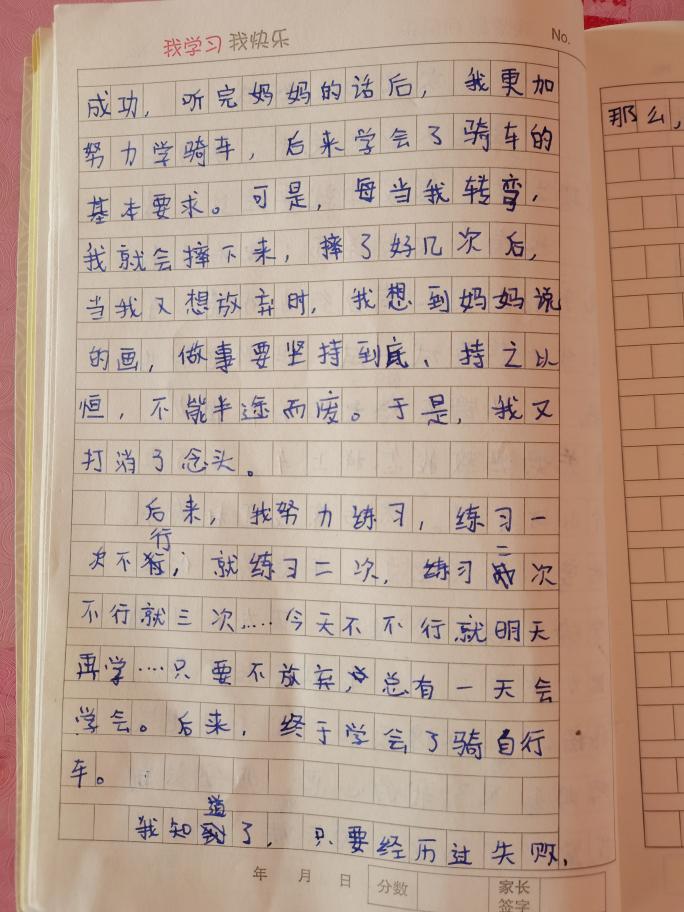 我学习 我快乐
No.
成功，听完妈妈的话后，我更加
努力学骑车，后来学会了骑车的
基本要求。可是，每当我转弯，
我就会摔下来，摔了好几次后，
当我又想放弃时，我想到妈妈说
的画，做事要坚持到底、持之以
恒，不能半途而废。于是，我又
打消了念头。
后来，我努力练习，练习一
次不行，就练习二次，练习二次
不行就三次……今天不不行就明天
再学……只要不放弃，总有一天会
学会。后来，终于学会了骑自行
车。
我知道了，只要经历过失败，
年 月 日 分数 家长签字
那么，